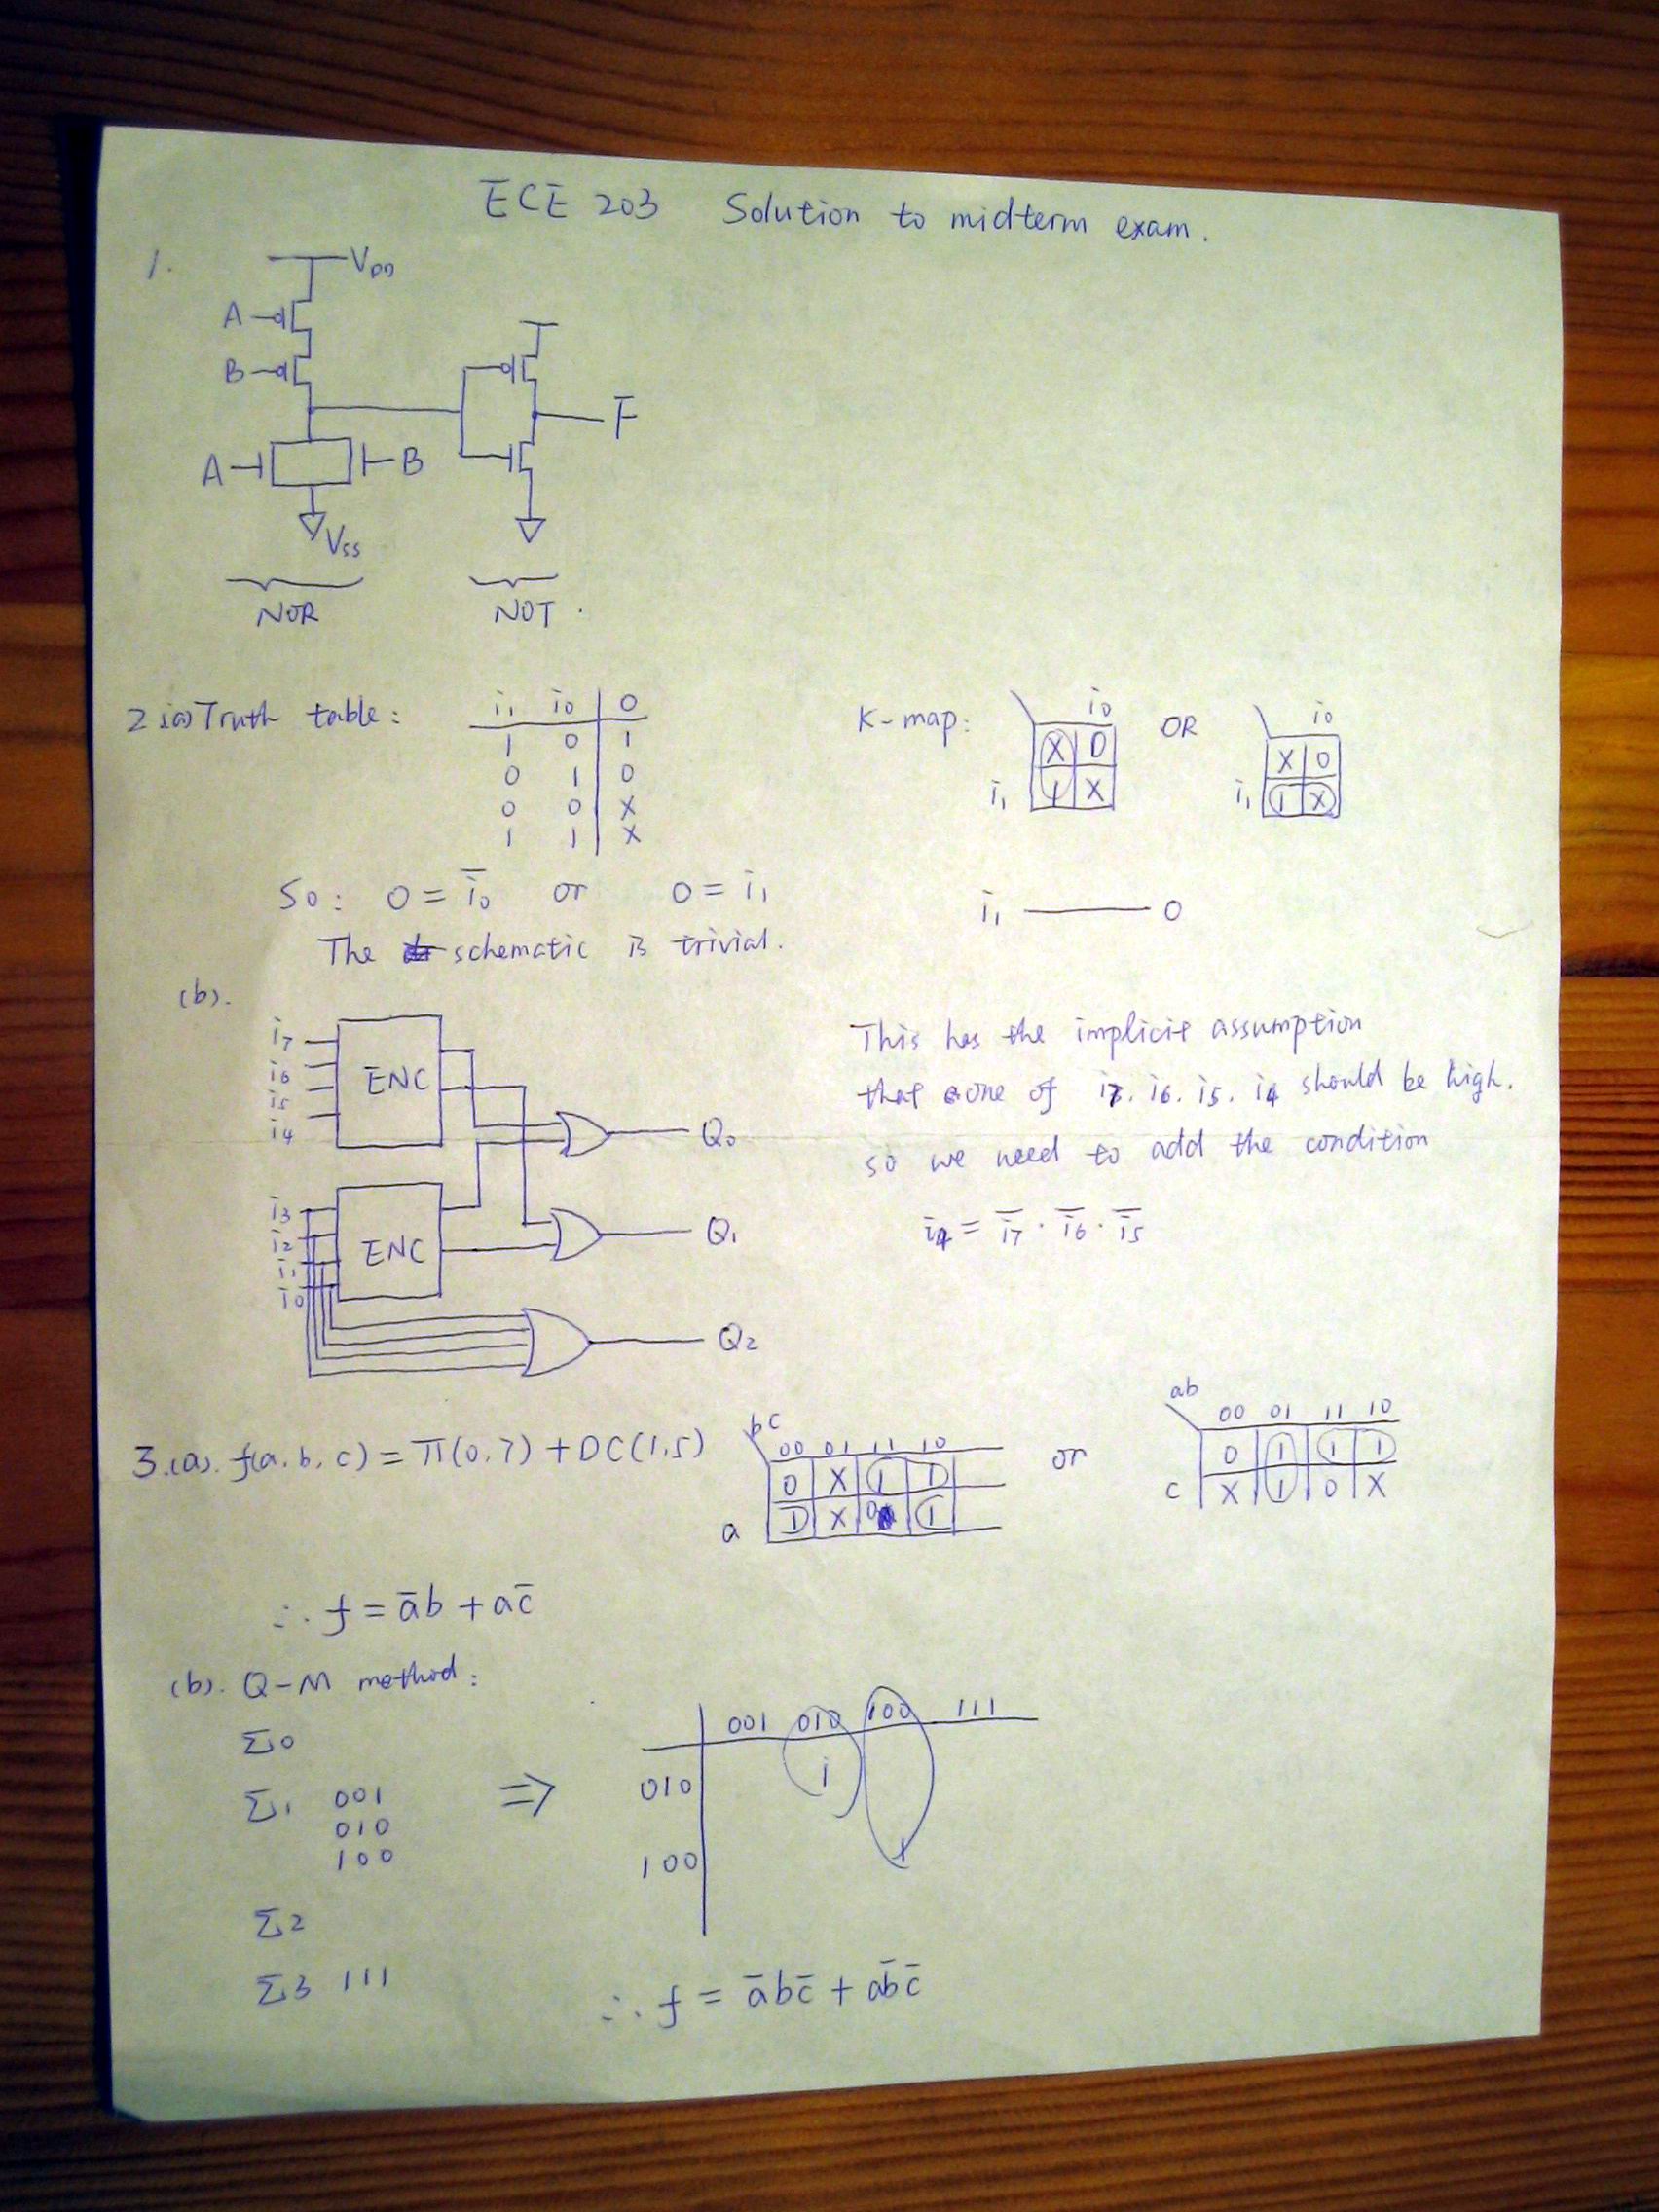 ECE 203 Solution to midterm exam.
1.
VDD
A
B
F
A B
Vss
NOR NOT.
2.(a) Truth table:
i₁ i₀ | 0
1 0 | 1
0 1 | 0
0 0 | X
1 1 | X
K-map:
i₀
X 0
i₁ 1 X
OR
i₀
X 0
i₁ 1 X
So: 0 = i̅₀ or 0 = i₁
i₁ — 0
The schematic is trivial.
(b).
i₇
i₆
i₅
i₄
ENC
Q₀
i₃
i₂
i₁
i₀
ENC
Q₁
Q₂
This has the implicit assumption
that one of i7. i6. i5. i4 should be high.
so we need to add the condition
i4 = i̅7 · i̅6 · i̅5
3.(a). f(a, b, c) = π(0,7) + DC(1,5)
bc
00 01 11 10
0 X 1 1
a 1 X 0 1
or
ab
00 01 11 10
0 1 1 1
c X 1 0 X
∴ f = a̅b + ac̅
(b). Q-M method:
Σ0
Σ1 001
010
100
Σ2
Σ3 111
⇒
001 010 100 111
010 1
100 1
∴ f = a̅bc̅ + ab̅c̅